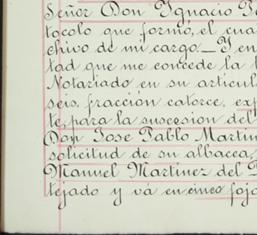 Señor Don Ygnacio
tocolo que formó, el cua
chivo de mi cargo._ Y en
tad que me concede la
Notariado en su articul
seis, fracción catorce, exp
te, para la sucesion del
Don Jose Pablo Martin
solicitud de su albacea,
Manuel Martinez del
tejado y vá en cinco foja